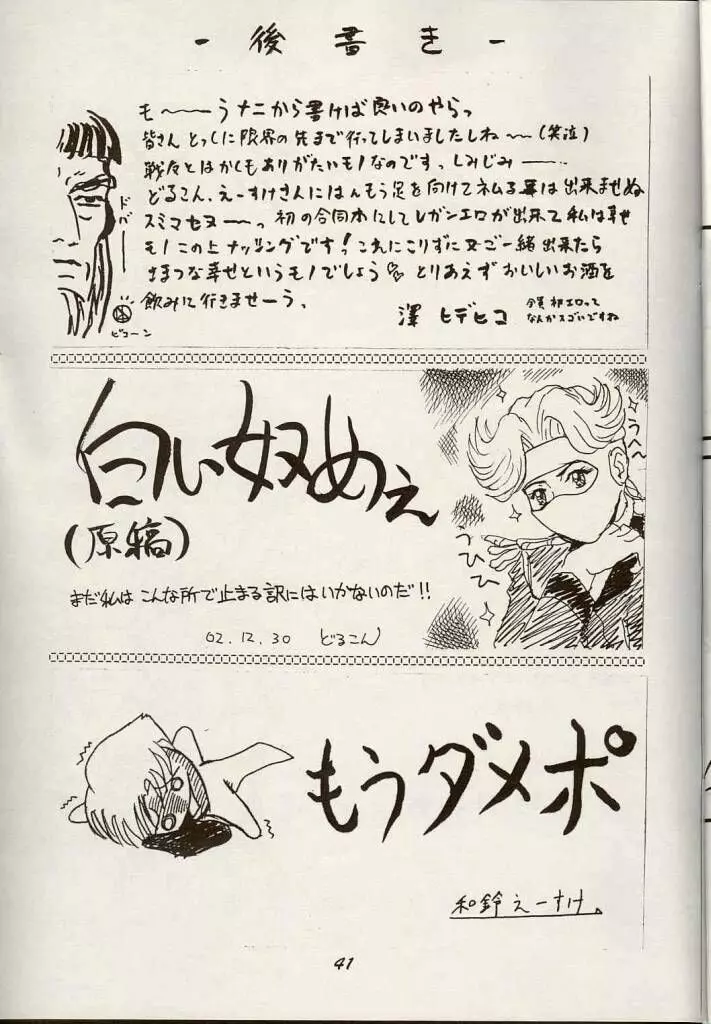 - 後書き -
も〜〜〜うナニから書けば良いのやらっ
皆さん とっくに限界の先まで行ってしまいましたしね〜(笑泣)
戦々とはかくもありがたいモノなのです。しみじみ――――。
どるこん、えーすけさんにはもう足を向けてネムる事は出来ませぬ
スミマセヌ――っ 初の合同本にしてレガンエロが出来て私は幸せ
モノこの上ナッシングです! これにこりずに又ご一緒出来たら
さまつな幸せというモノでしょう とりあえずおいしいお酒を
飲みに行きませーう。
澤 ヒデヒコ
全員初エロって
なんかスゴいですね
ドバーー
ピコーン
白い奴めぇ
(原稿)
まだ私は こんな所で止まる訳にはいかないのだ!!
02.12.30 どるこん
うへへ
うひひ
もうダメポ
和鈴えーすけ。
41